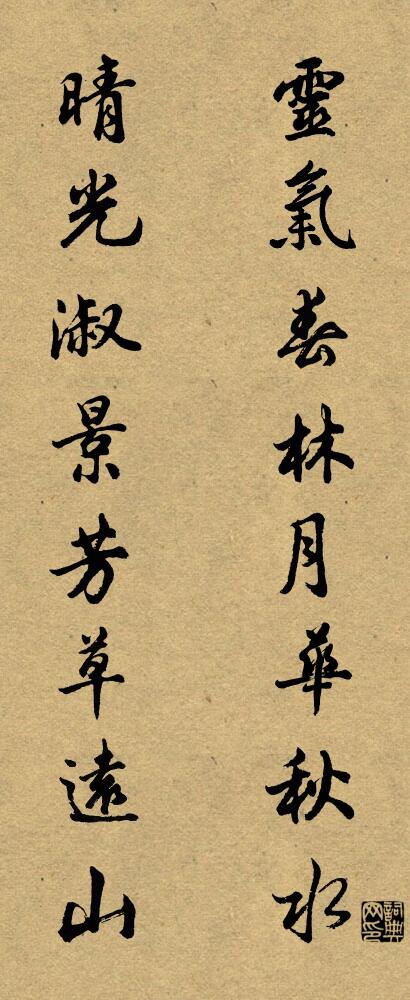 靈氣春林月華秋水
晴光淑景芳草遠山
詞典網印